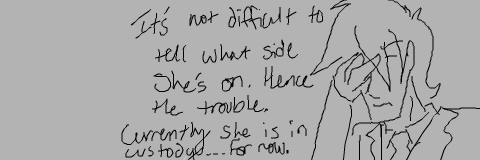 It's not difficult to
tell what side
She's on. Hence
the trouble.
Currently she is in
custody....For now.